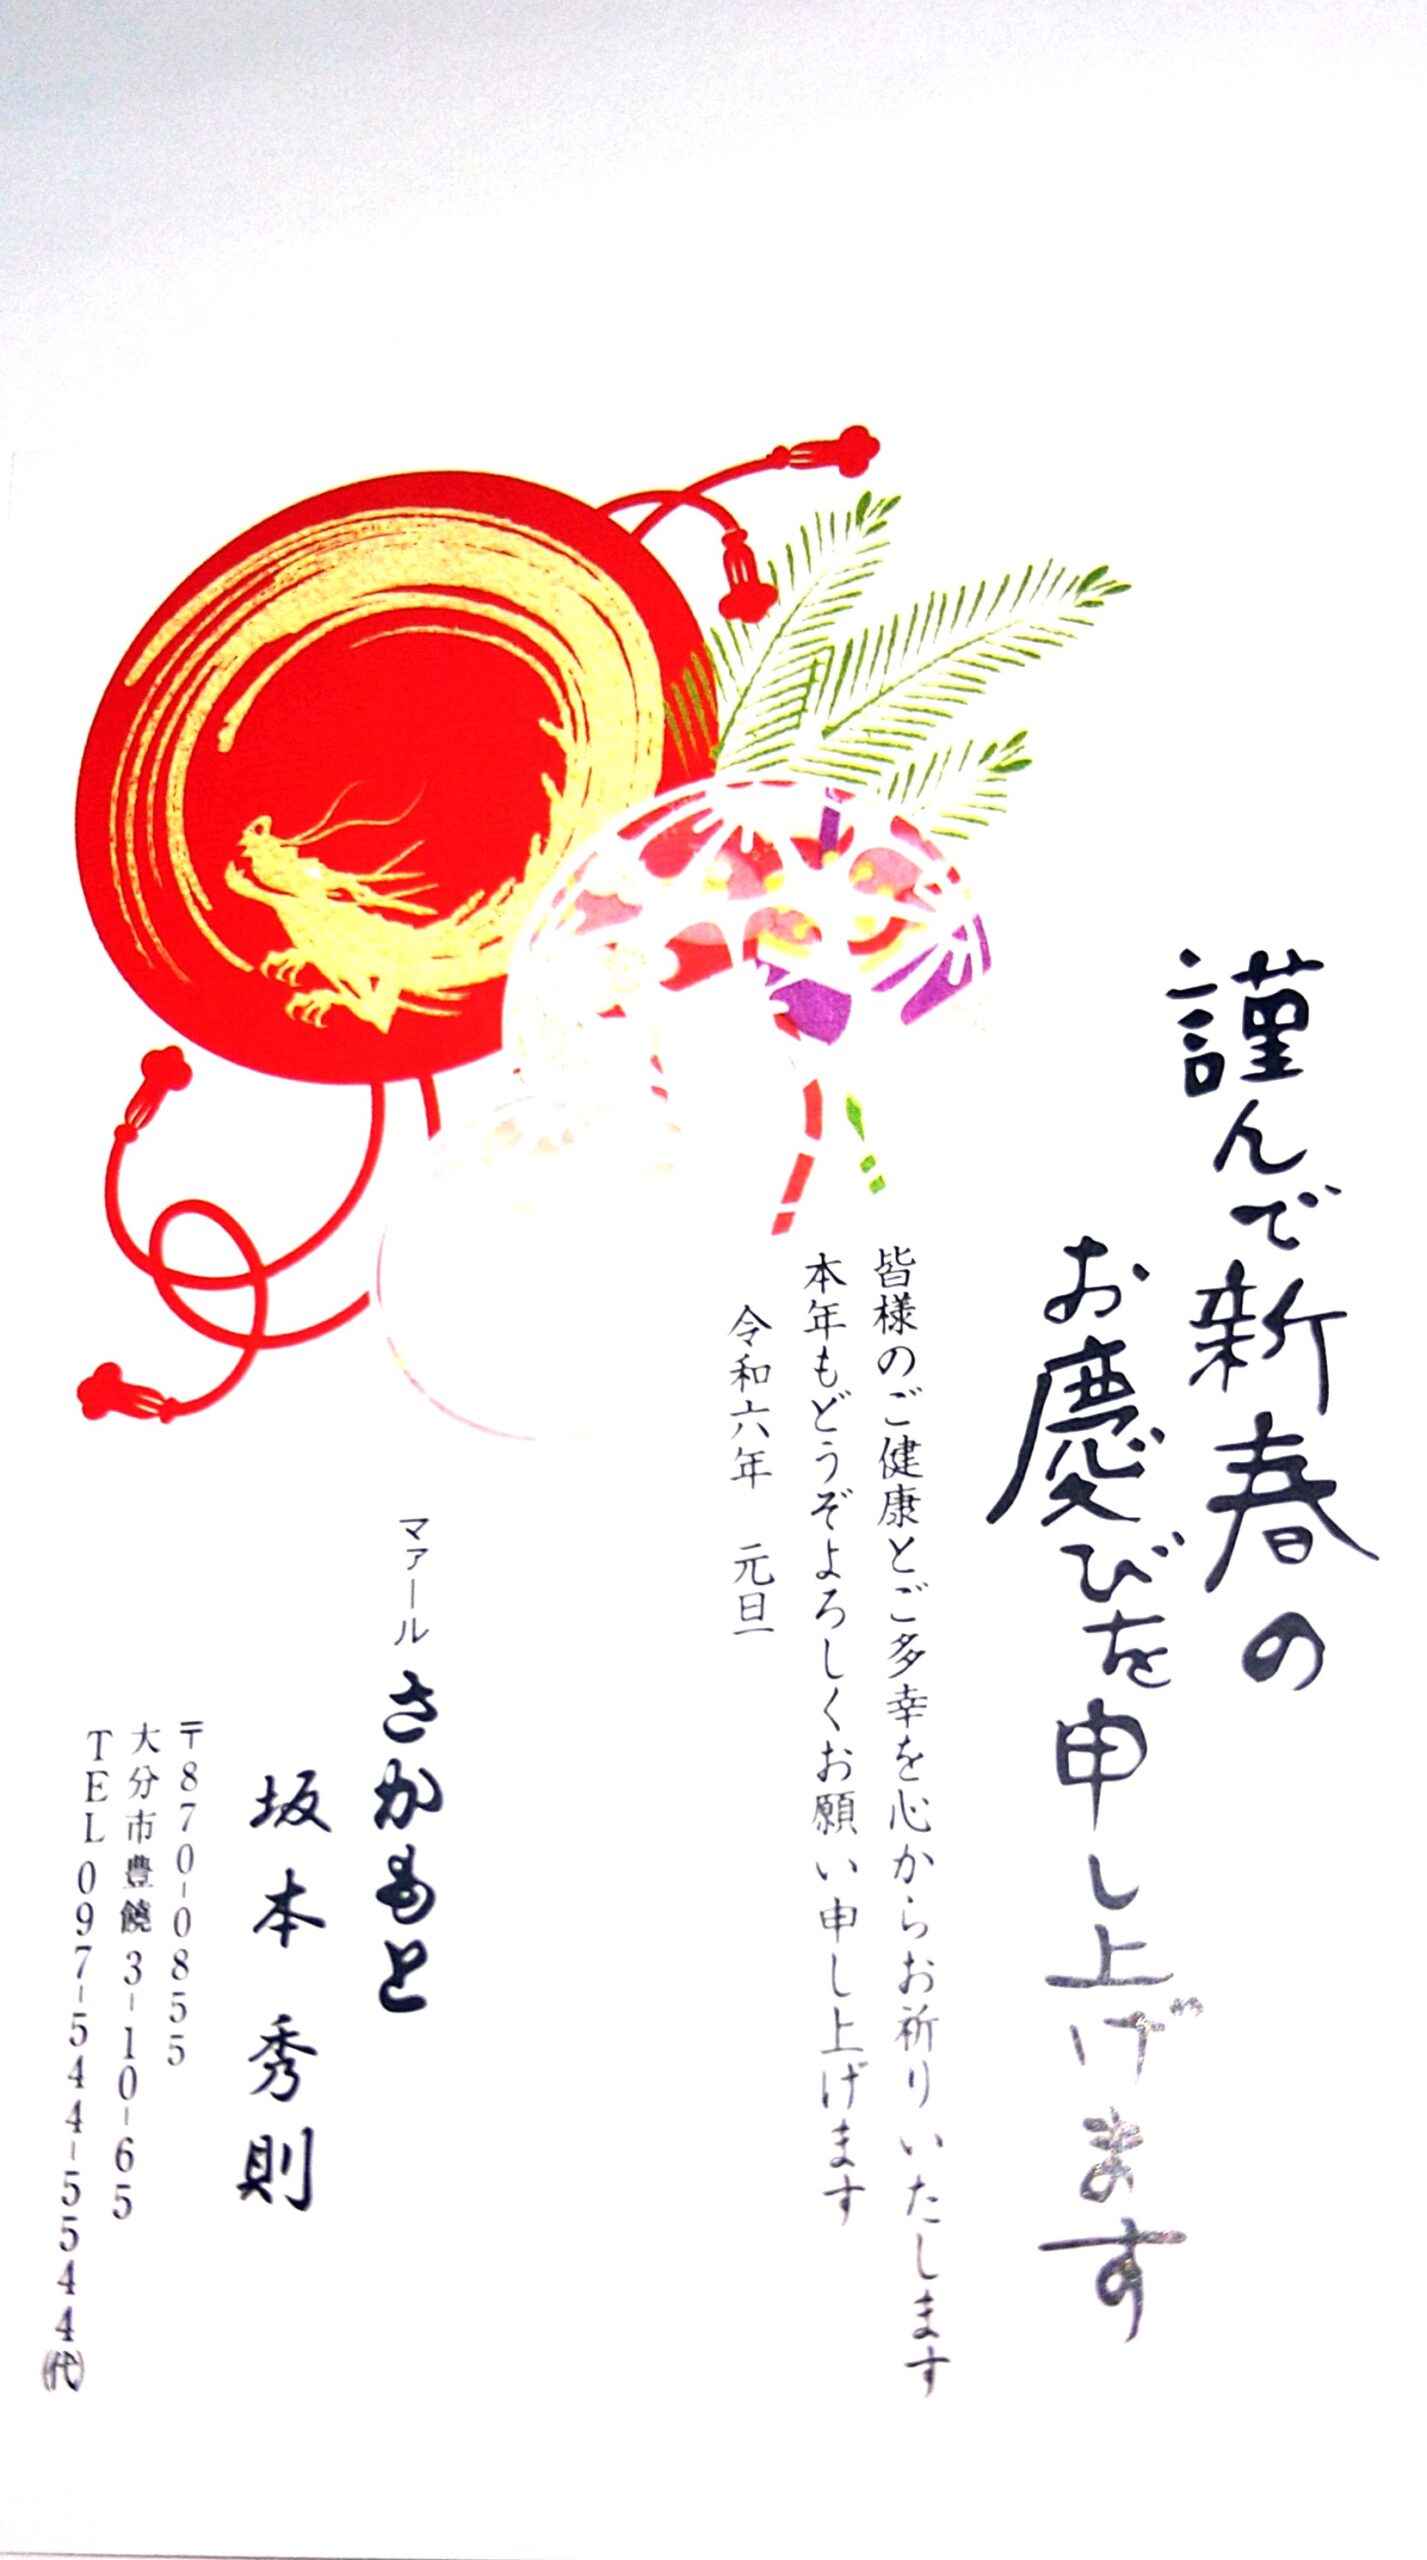 謹んで新春の
お慶びを申し上げます
皆様のご健康とご多幸を心からお祈りいたします
本年もどうぞよろしくお願い申し上げます
令和六年 元旦
マァール さかもと
坂本秀則
〒870-0855
大分市豊饒3-10-65
TEL 097-544-5544㈹